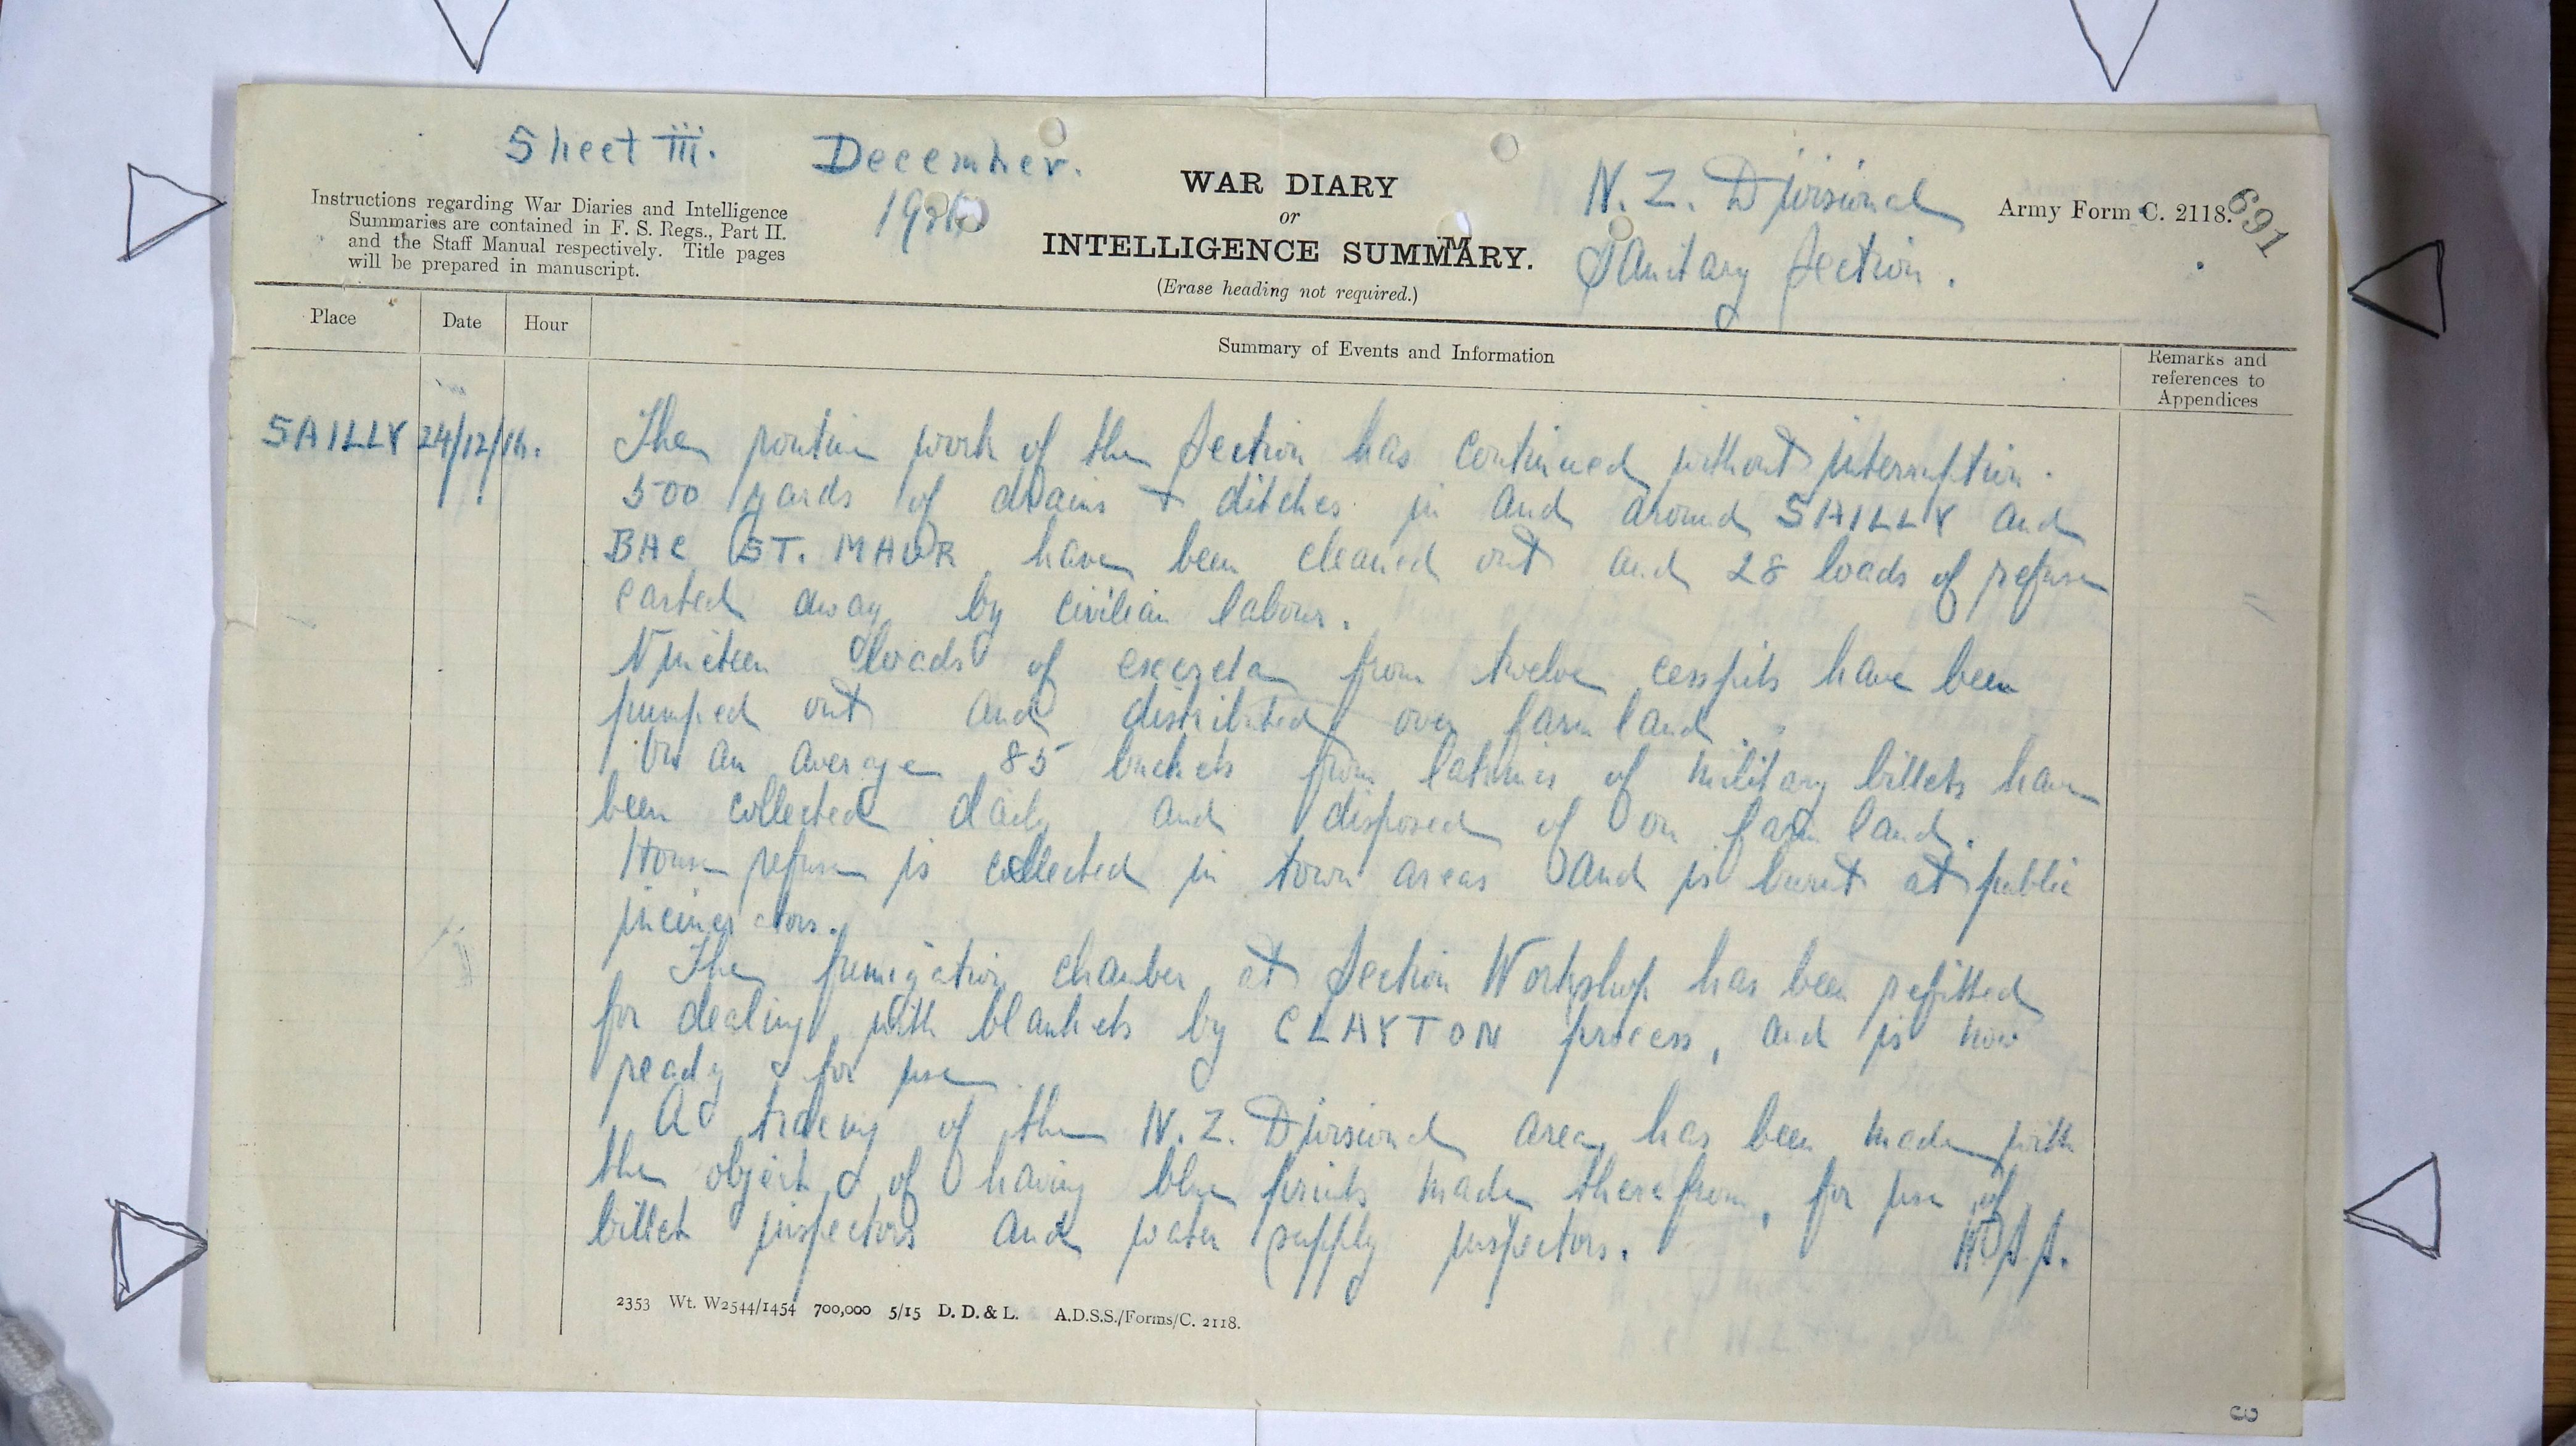 Sheet III. December. 1916
WAR DIARY
or
INTELLIGENCE SUMMARY.
(Erase heading not required.)
N. Z. Divisional
Sanitary Section.
Army Form C. 2118.
691
Instructions regarding War Diaries and Intelligence
Summaries are contained in F. S. Regs., Part II.
and the Staff Manual respectively. Title pages
will be prepared in manuscript.
Place Date Hour Summary of Events and Information Remarks and references to Appendices
SAILLY 24/12/16. The routine work of the Section has continued without interruption.
500 yards of drains & ditches in and around SAILLY and
BAC ST. MAUR have been cleaned out and 28 loads of refuse
carted away by civilian labour.
Nineteen loads of excreta from twelve cesspits have been
pumped out and distributed over farm land.
On an average 85 buckets from latrines of military billets have
been collected daily and disposed of on farm land.
House refuse is collected in town areas and is burnt at public
incinerators.
The fumigation chamber at Section Workshop has been refitted
for dealing with blankets by CLAYTON process, and is now
ready for use.
A tracing of the N.Z. Divisional area has been made with
the object of having blue prints made therefrom, for use of
billet inspectors and water supply inspectors.
2353 Wt. W2544/1454 700,000 5/15 D. D. & L. A.D.S.S./Forms/C. 2118.
3